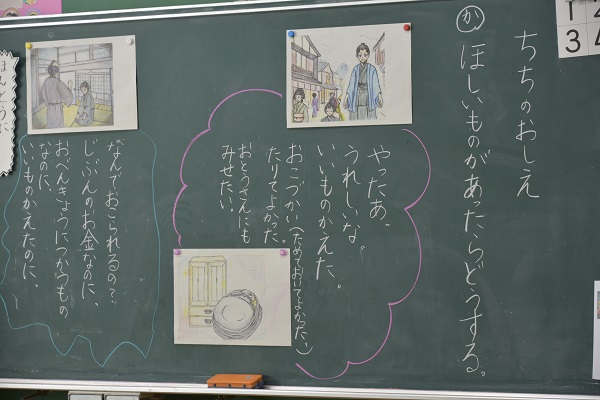 ちちのおしえ
か ほしいものがあったらどうする。
やったあ。
うれしいな。
いいものかえた。
おこづかい(ためておいてよかった。)
たりてよかった
おとうさんにも
みせたい。
なんでおこられるの?
じぶんのお金なのに、
おべんきょうにつかうもの
なのに、
いいものかえたのに、
ほんとうに
1 2
3 4